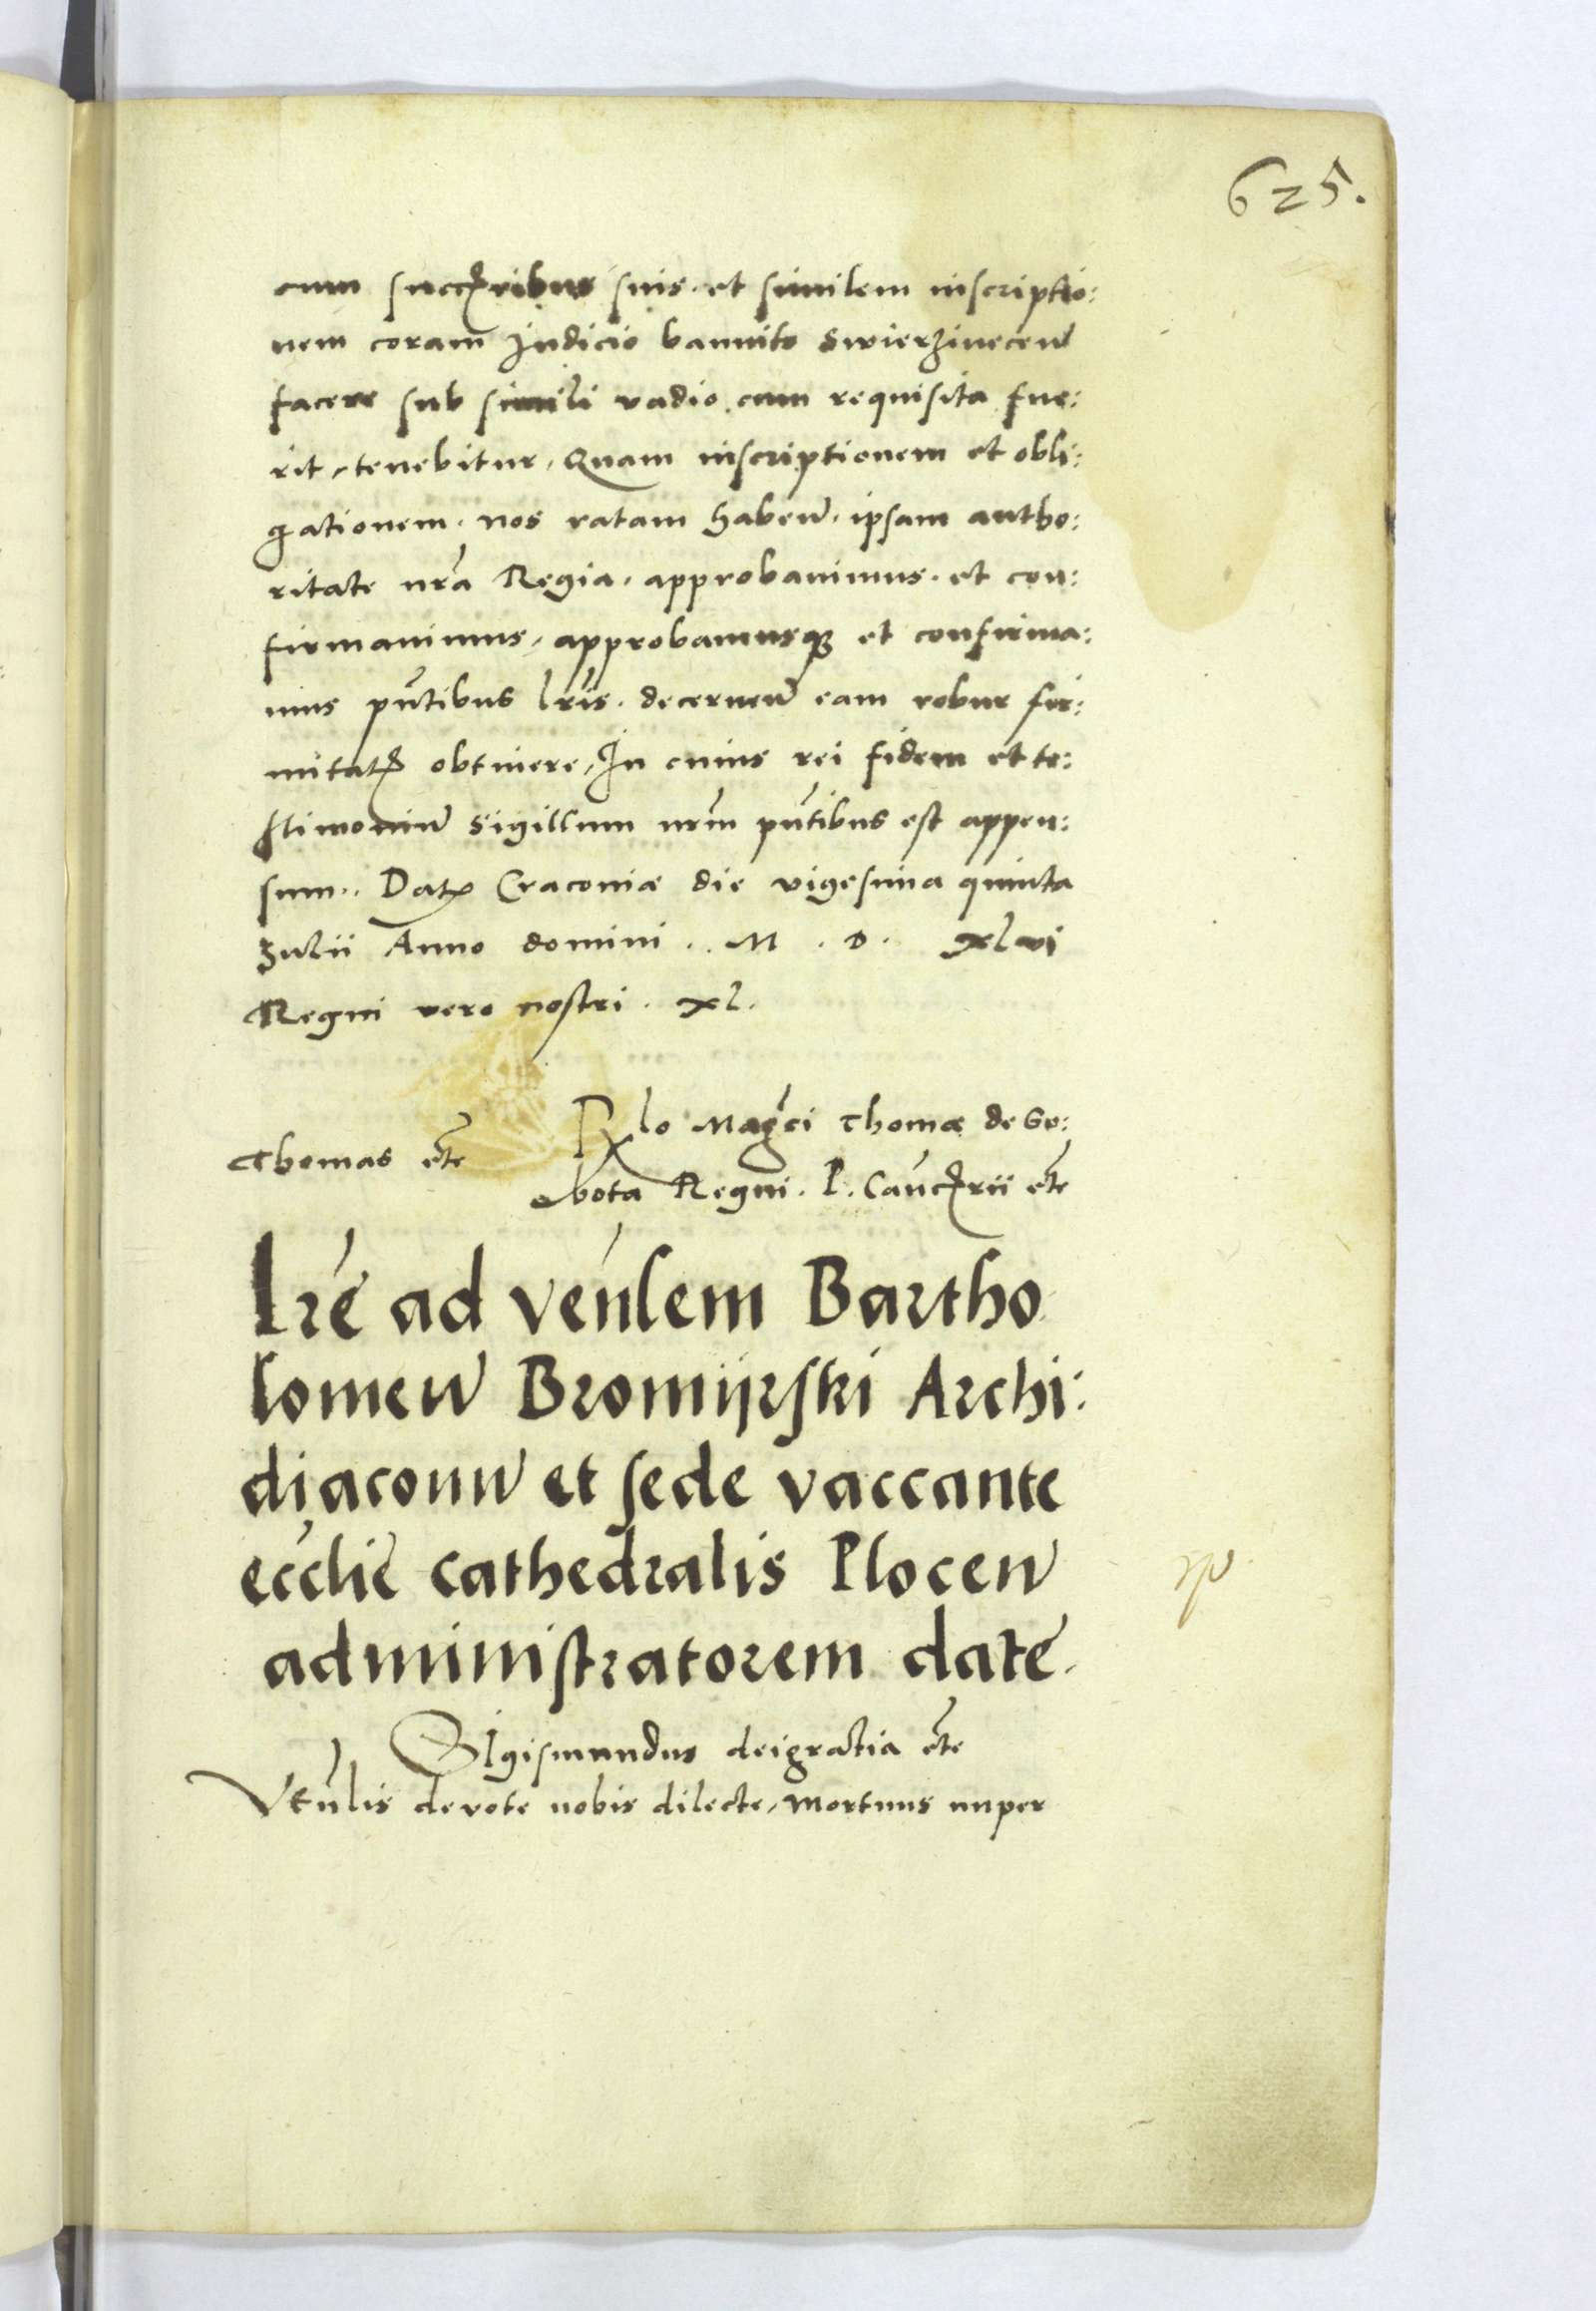 625.
cum succꝛibus suis. et similem inscriptio:
nem coram Judicio bannito Swierzinecen̄
facere sub simili vadio cum requisita fue:
rit, tenebitur, Quam inscriptionem et obli:
gationem. nos ratam haben̄. ipsam autho:
ritate nr̄a Regia. approbauimus. et con:
firmauimus, approbamusqꝫ et confirma:
mus pn̄tibus lr̄is. decernen̄ eam robur fir:
mitatꝭ obtinere, In cuius rei fidem et te:
stimoniū sigillum nr̄m pn̄tibus est appen:
sum. Datꝭ Cracoviæ die vigesima quinta
Julii Anno domini . M . D . xlvi
Regni vero nostri . xl.
Thomas etc̄
Rl̄o Mag̃ci Thomæ de So:
bota Regni. P. Canc̃rii etc̄
Lr̄e ad ven̄lem Bartho
lomeū Bromijrski Archi:
diaconū et sede vaccante
eccliē cathedralis Plocen̄
administratorem date.
Sigismundus dei gratia etc̄
Ven̄lis devote nobis dilecte, Mortuus nuper